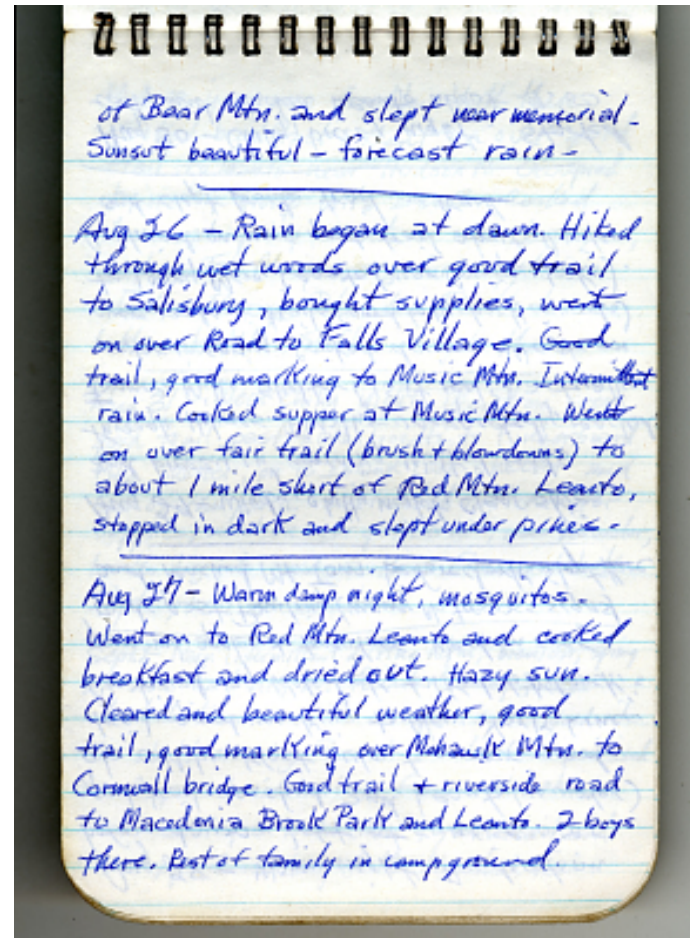 of Bear Mtn. and slept near memorial -
Sunset beautiful - forecast rain -
Aug 26 - Rain began at dawn. Hiked
through wet woods over good trail
to Salisbury, bought supplies, went
on over Road to Falls Village. Good
trail, good marking to Music Mtn. Intermittent
rain. Cooked supper at Music Mtn. Went
on over fair trail (brush + blowdowns) to
about 1 mile short of Red Mtn. Leanto,
stopped in dark and slept under pines -
Aug 27 - Warm damp night, mosquitos -
Went on to Red Mtn. Leanto and cooked
breakfast and dried out. Hazy sun.
Cleared and beautiful weather, good
trail, good marking over Mohawk Mtn. to
Cornwall bridge. Good trail + riverside road
to Macedonia Brook Park and Leanto. 2 boys
there. Rest of family in campground.